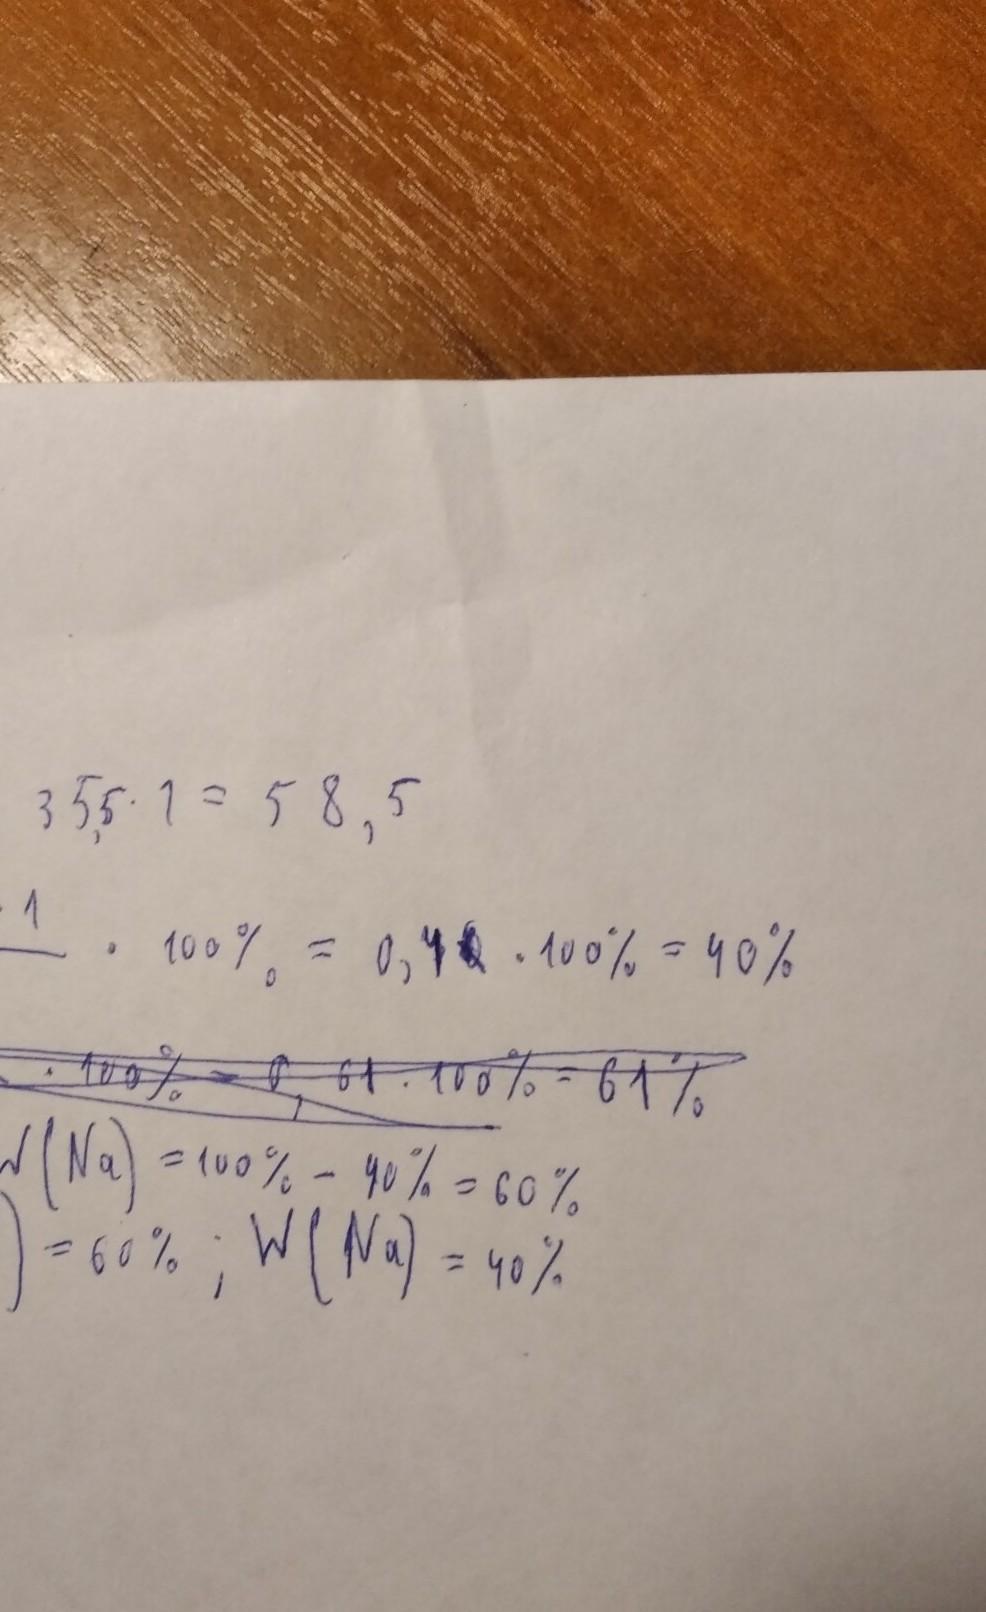 35,5 · 1 = 58,5
· 1
· 100% = 0,40 · 100% = 40%
· 100% = 0,61 · 100% = 61%
W(Na) = 100% - 40% = 60%
) = 60% ; W(Na) = 40%